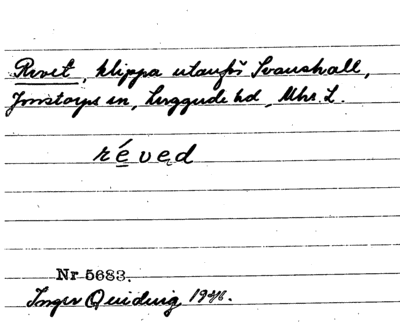 Revet, klippa utanför Svanshall,
Jonstorps sn, Luggude hd, Mhs. L.
réved
Nr 5683.
Inger Quiding 1946.